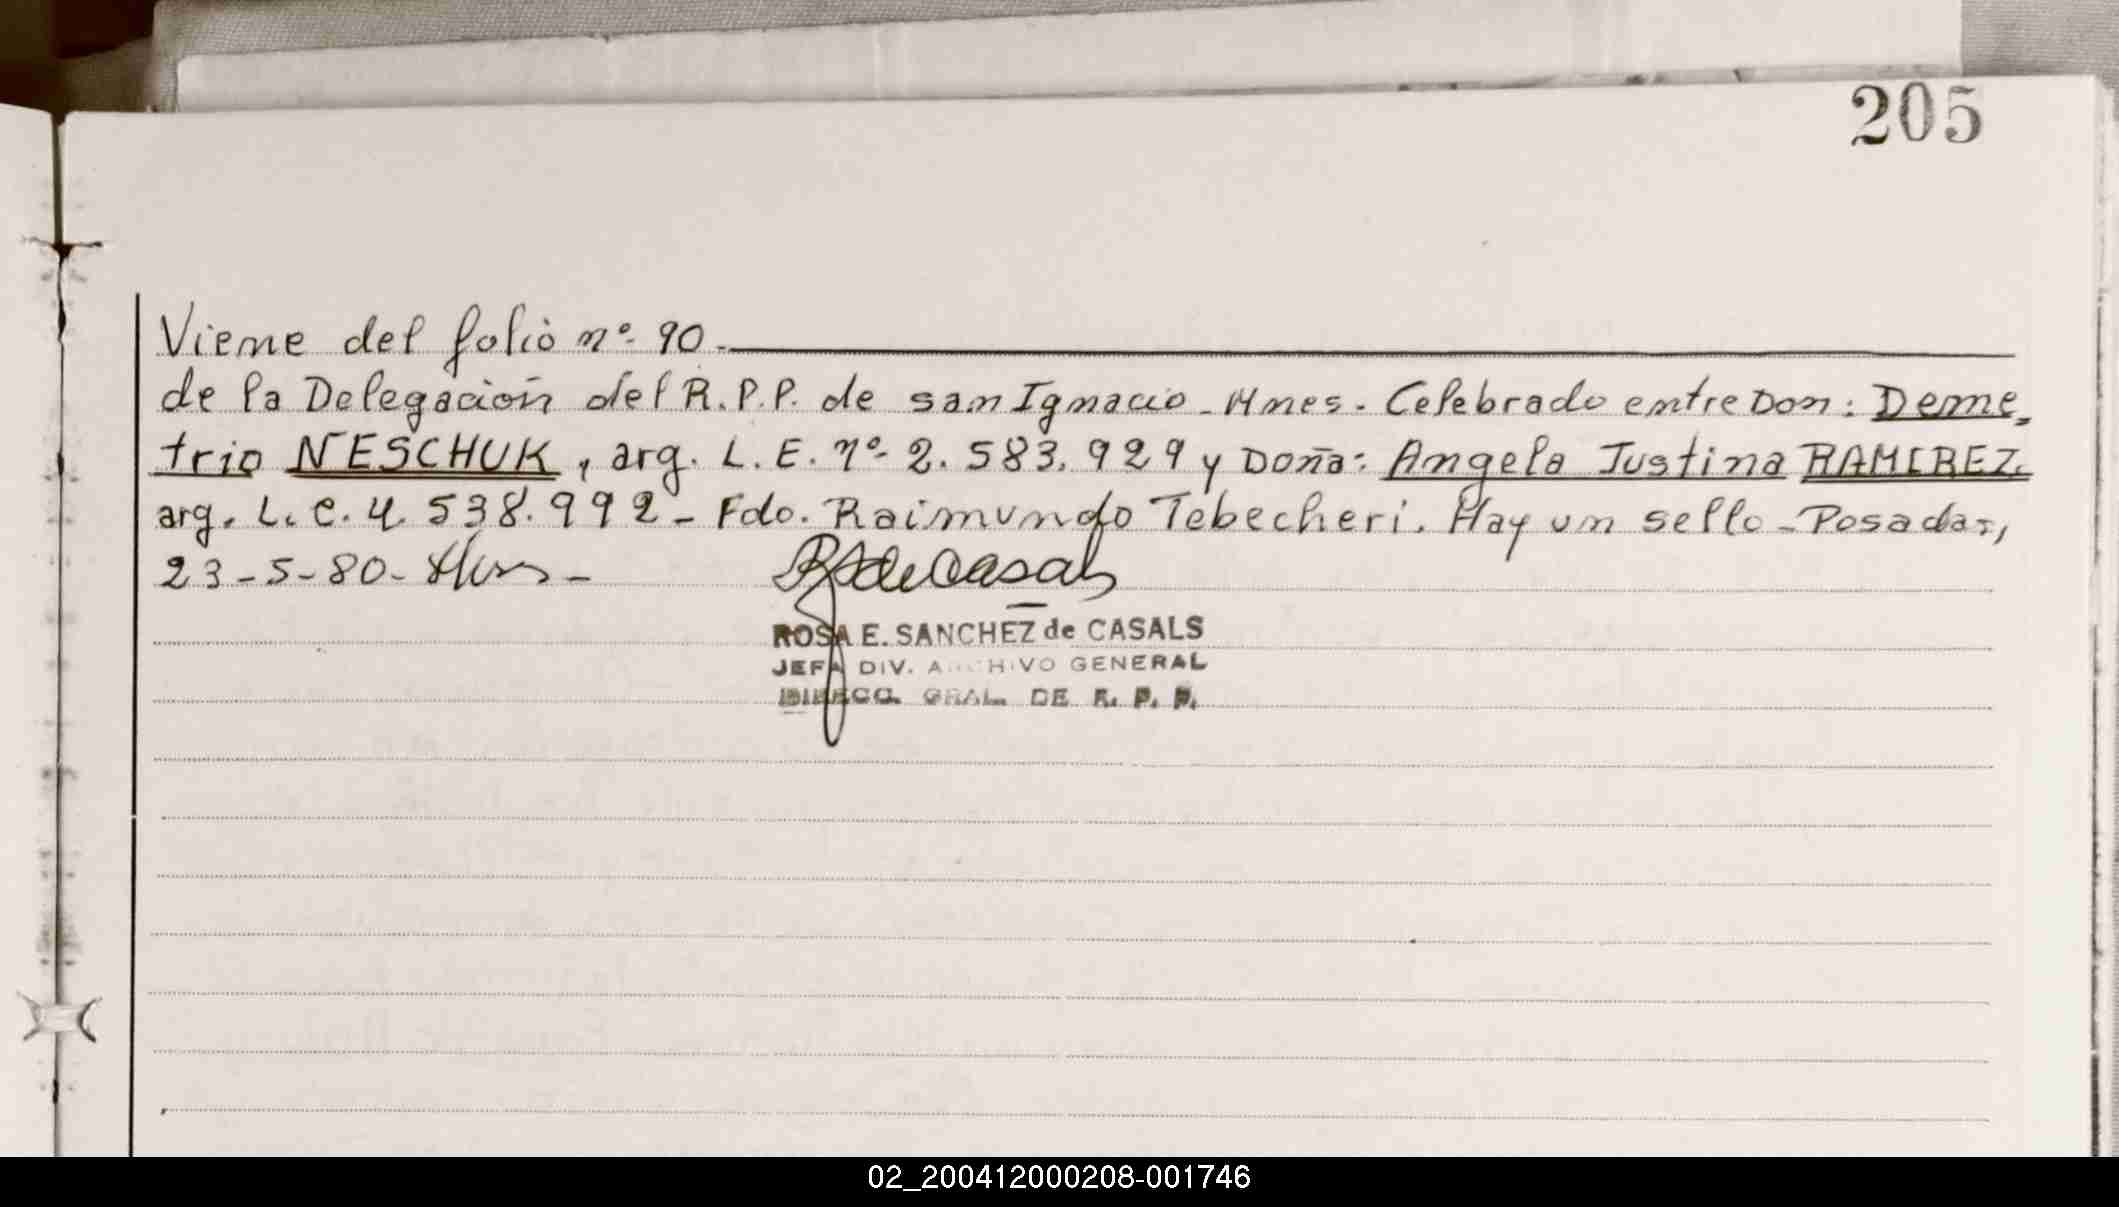 205
Viene del folio nº 90.
de la Delegación del R.P.P. de san Ignacio - Mnes. Celebrado entre Don: Deme-
trio NESCHUK, arg. L.E. nº 2.583.929 y Doña: Angela Justina RAMIREZ.
arg. L.C. 4.538.992 - Fdo. Raimundo Tebecheri. Hay un sello - Posadas,
23-5-80-
RSdeCasals
ROSA E. SANCHEZ de CASALS
JEFA DIV. ARCHIVO GENERAL
DIRECC. GRAL. DE R. P. P.
02_200412000208-001746